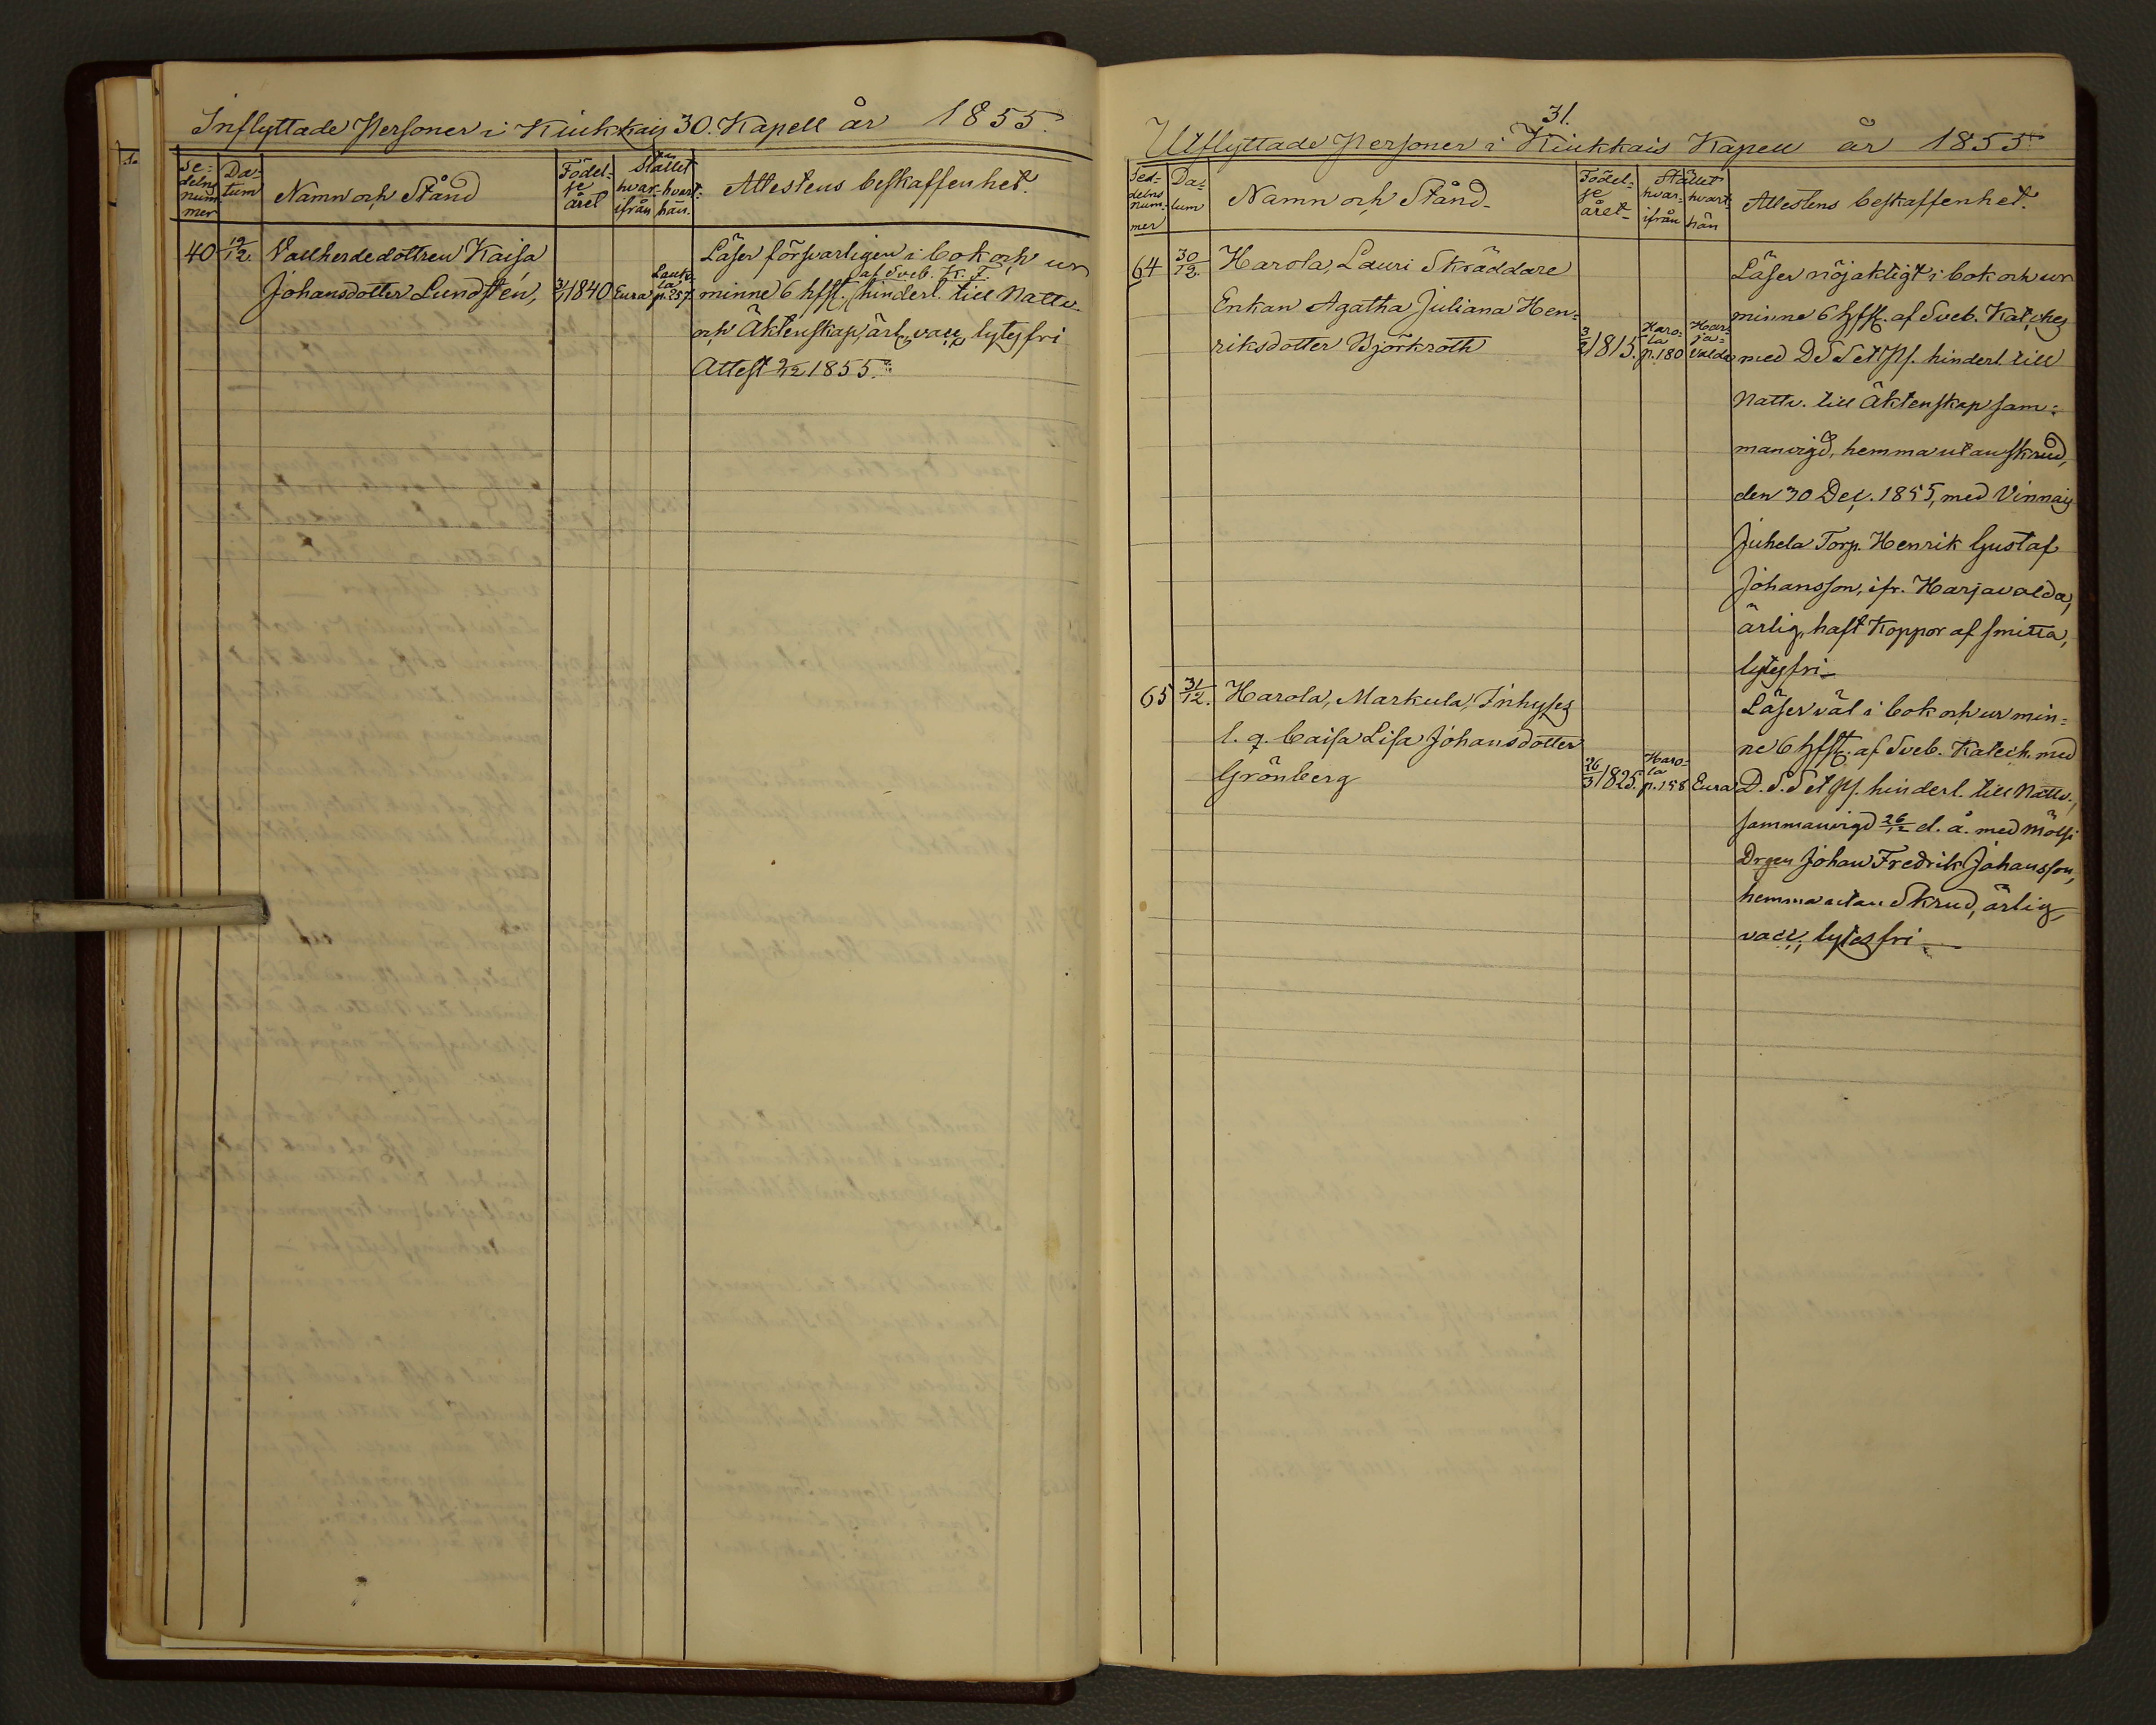 Inflyttade Personer i Kiukkais 30. Kapell år 1855.
Se-
delns
num-
mer
Da-
tum
Namn och Stånd
Födel-
se
året
Stället
hvar-
ifrån
hvart-
hän.
Attestens beskaffenhet.
40 19/12. Vallherdedottren Kaisa
Johansdotter Lundstén, 1840 Eura Lauk-
la
p. 257.
Läser försvarligen i bok och ur
af Sveb. K. F.
minne 6 hfst. hinderl. till Nattv.
och Äktenskap, ärl, vacc, lytesfri
Attest 1855.
31.
Utflyttade Personer i Kiukkais Kapell år 1855.
Sed-
delns
num-
mer
Da-
tum
Namn och Stånd
Födel-
se
året
Stället
hvar-
ifrån
hvart-
hän
Attestens beskaffenhet.
64 30/12. Harola, Lauri Skräddare
Enkan Agatha Juliana Hen-
riksdotter Björkroth 1815. Haro-
la
p. 180
Har-
ja-
valda
Läser nöjaktigt i bok och ur
minne 6 hfst. af Sveb. Kateches
med D S S et Ps. hinderl. till
Nattv. till Äktenskap sam-
manvigd, hemma utan skrud,
den 30 Dec. 1855, med Vinnais
Juhela Torp. Henrik Gustaf
Johansson, ifr. Harjavalda,
ärlig, haft Koppor af smitta,
lytesfri
65 31/12. Harola, Markula, Inhyses
l. q. Caisa Lisa Johansdotter
Grönberg 26/3 1825. Haro-
la
p. 158 Eura
Läser väl i bok och ur min-
ne 6 hfst. af Sveb. Katech. med
D. S. S et Ps. hinderl. till Nattv.,
sammanvigd 26/12 d. å. med Mölsi
Drgen Johan Fredrik Johansson,
hemma utan Skrud, ärlig,
vacc, lytesfri